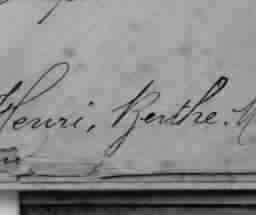 Henri, Berthe. M